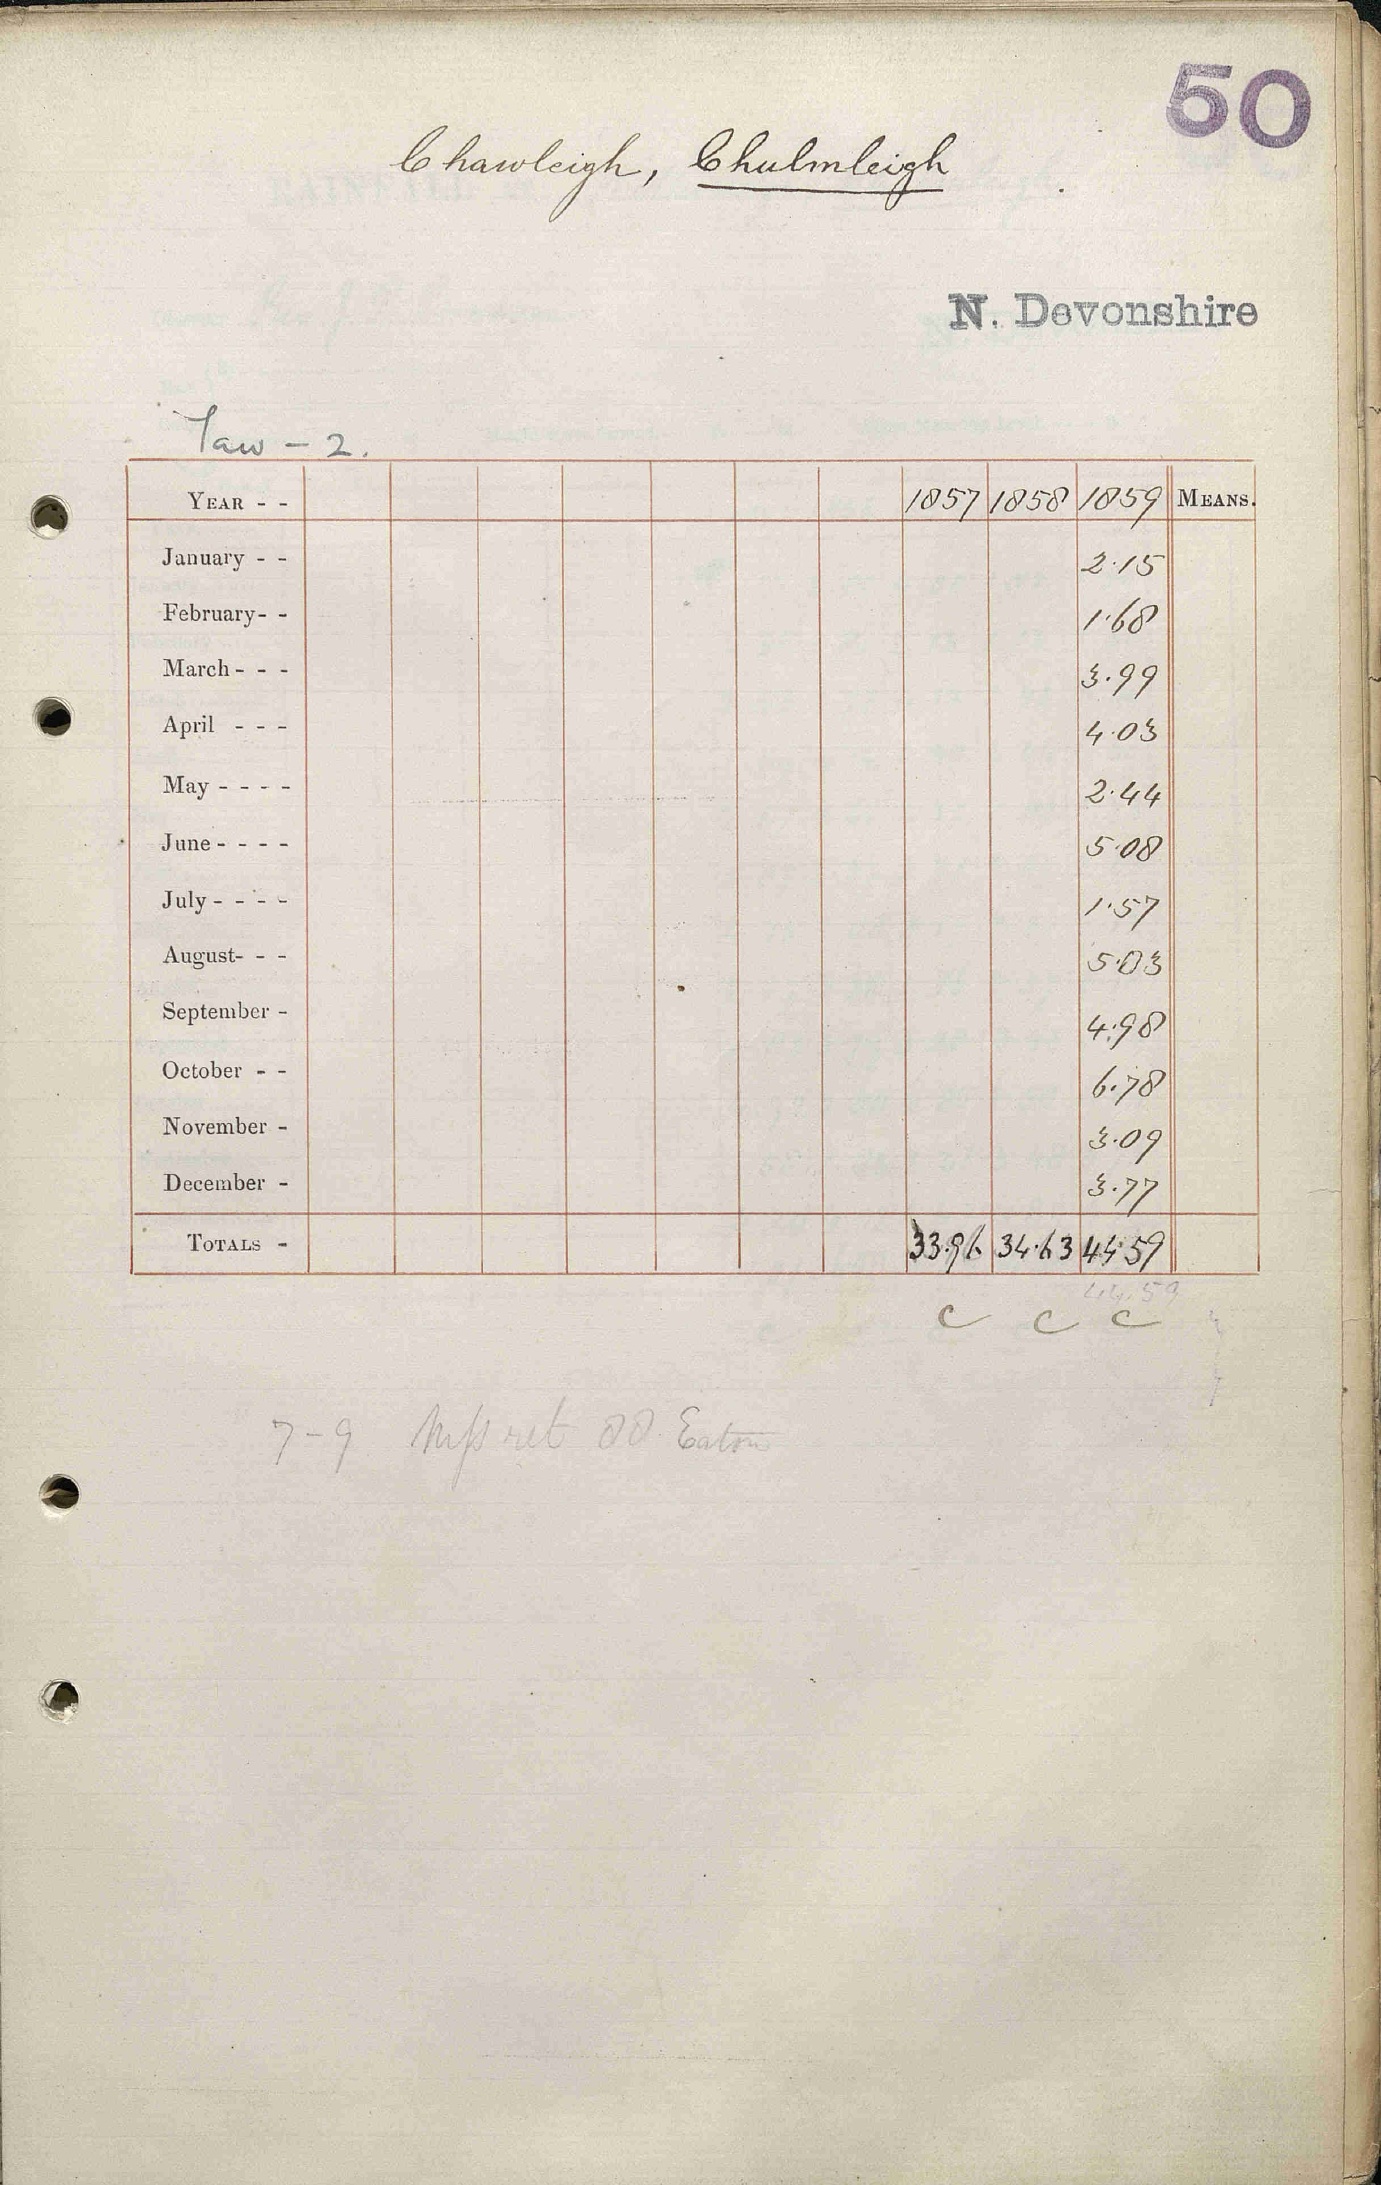 50
Chawleigh, Chulmleigh
N. Devonshire
Taw - 2.
YEAR - - 1857 1858 1859 MEANS.
January - - 2.15
February - - 1.68
March - - - 3.99
April - - - 4.03
May - - - - 2.44
June - - - - 5.08
July - - - - 1.57
August - - - 5.03
September - 4.98
October - - 6.78
November - 3.09
December - 3.77
TOTALS - 33.96 34.63 44.59
44.59
C C C
7-9 Mss ret Eaton